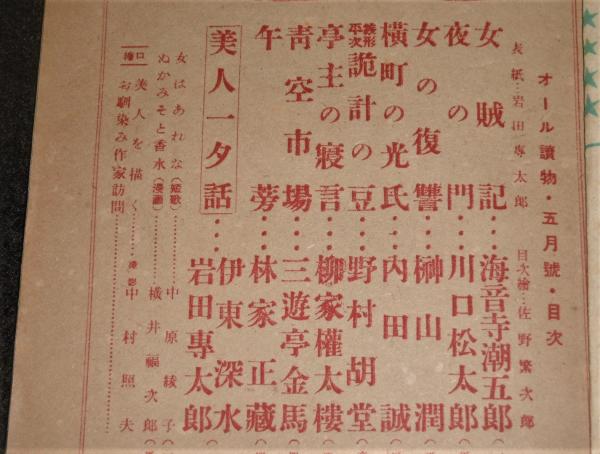 オール讀物・五月號・目次
表紙…岩田專太郎　目次繪…佐野繁次郎
女賊記…海音寺潮五郎
夜の門…川口松太郎
女の復讐…榊山潤
横町の光氏…内田誠
銭形平次 詭計の豆…野村胡堂
亭主の寢言…柳家權太樓
靑空市場…三遊亭金馬
午蒡…林家正藏
美人一夕話…伊東深水
岩田專太郎
女はあれな(短歌)……中原綾子
ぬかみそと香水(漫畫)……横井福次郎
口繪 美人を描く……撮影 中村照夫
お馴染み作家訪問……